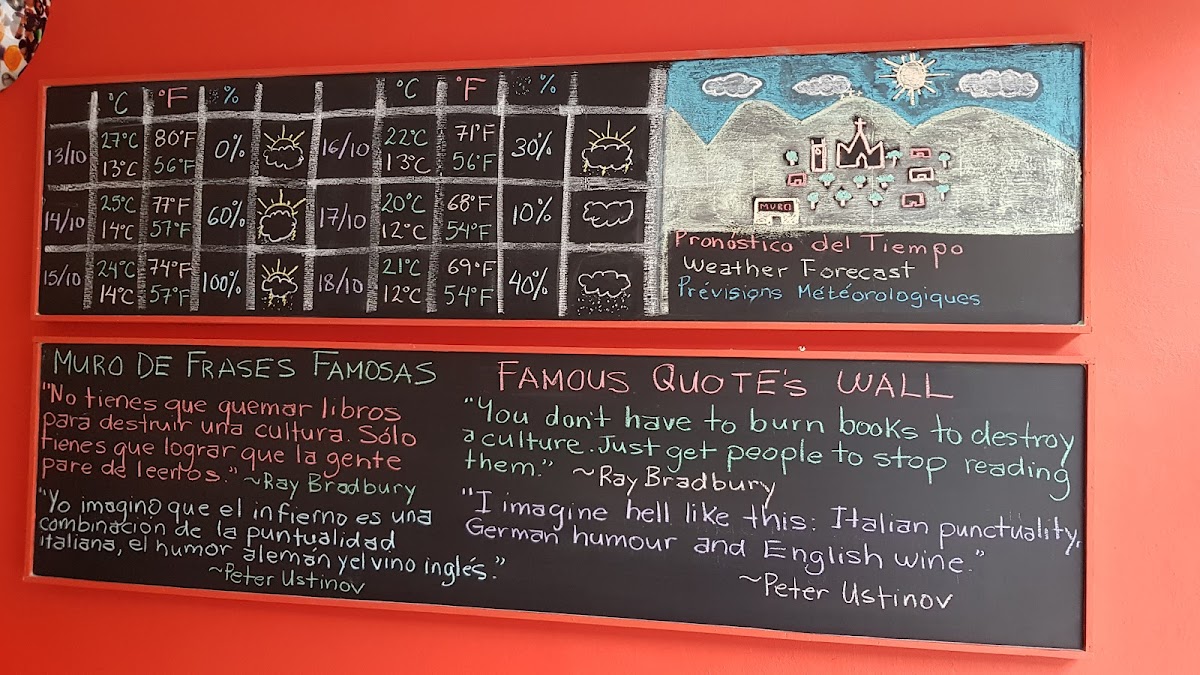 °C °F % °C °F %
13/10 27°C 80°F 0% 16/10 22°C 71°F 30%
13°C 56°F 13°C 56°F
14/10 25°C 77°F 60% 17/10 20°C 68°F 10%
14°C 57°F 12°C 54°F
15/10 24°C 74°F 100% 18/10 21°C 69°F 40%
14°C 57°F 12°C 54°F
MURO
Pronóstico del Tiempo
Weather Forecast
Prévisions Météorologiques
MURO DE FRASES FAMOSAS
"No tienes que quemar libros
para destruir una cultura. Sólo
tienes que lograr que la gente
pare de leerlos." ~Ray Bradbury
"Yo imagino que el infierno es una
combinación de la puntualidad
italiana, el humor alemán y el vino inglés."
~Peter Ustinov
FAMOUS QUOTE'S WALL
"You don't have to burn books to destroy
a culture. Just get people to stop reading
them." ~Ray Bradbury
"I imagine hell like this: Italian punctuality,
German humour and English wine."
~Peter Ustinov